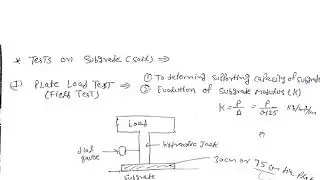 * Tests on Subgrade (Soil) ⇒
(I) Plate Load Test ⇒ ① To determing supporting capacity of subgrade
(Field Test) ② Evalution of Subgrade Modulus (K)
K = P/Δ = P/0.125 kg/cm²/cm
Load
dial gauge
Hydraulic Jack
30cm or 75cm dia plate
Subgrade